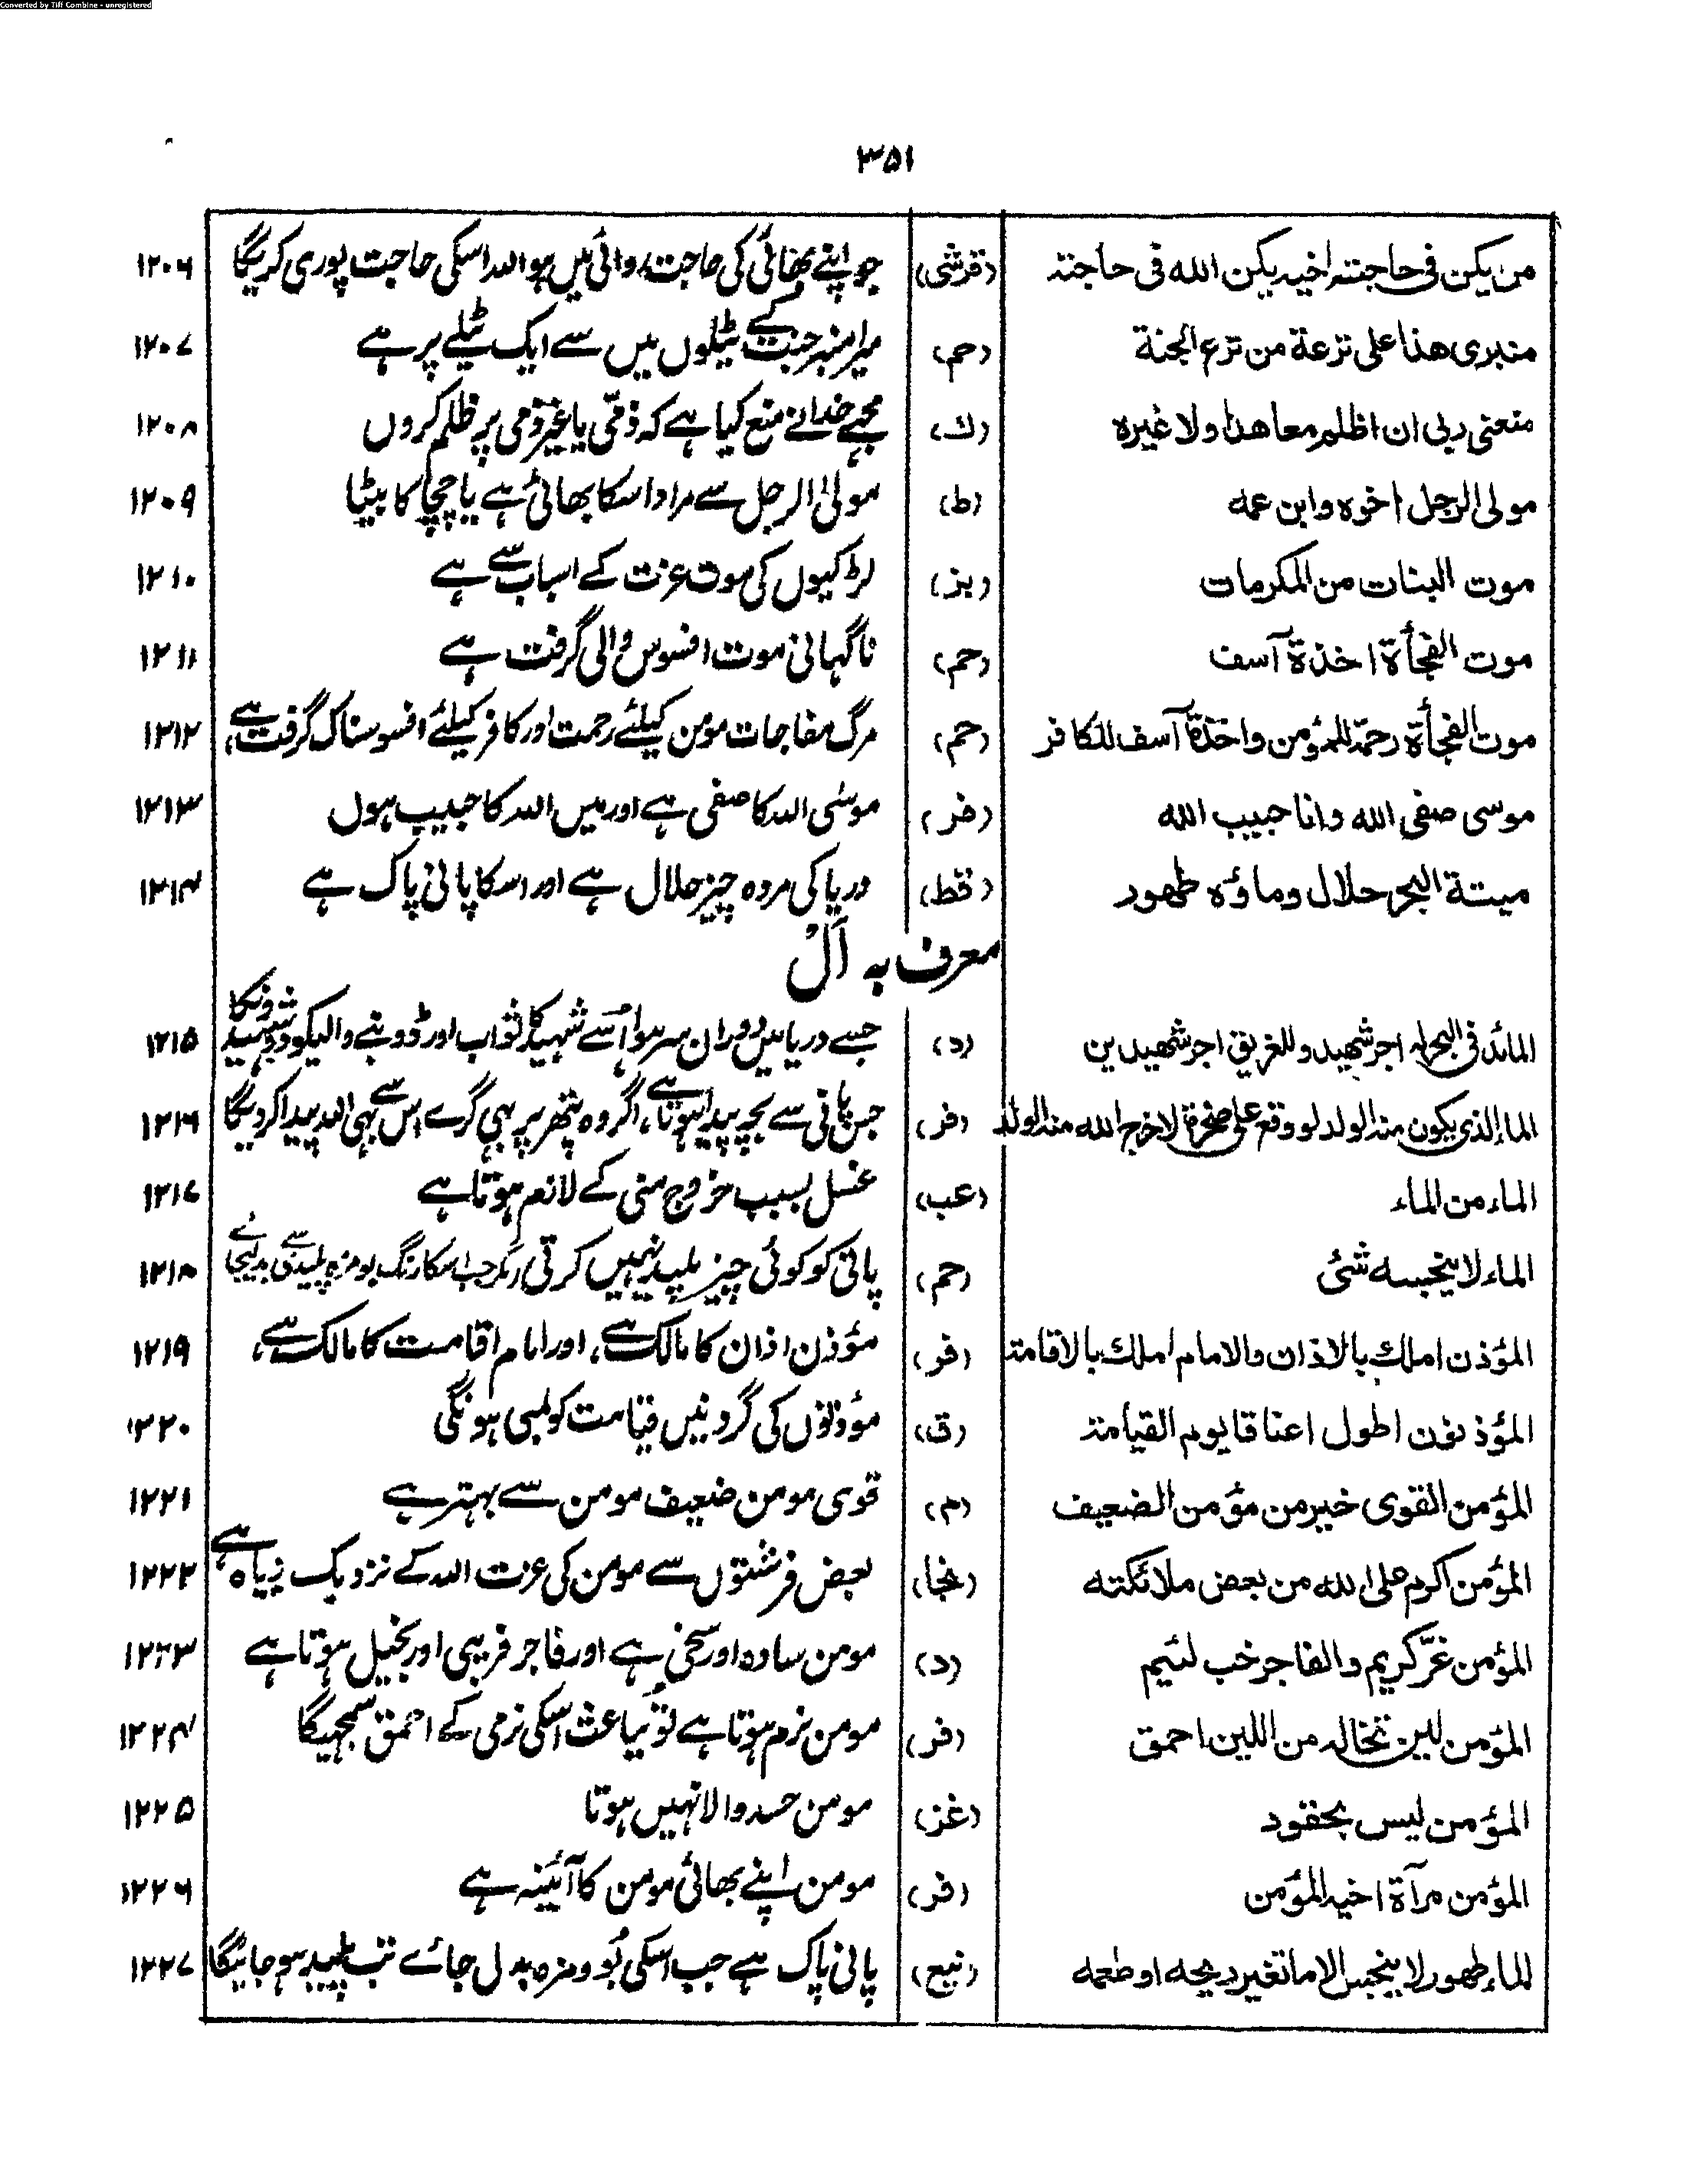 Converted by Tiff Combine - unregistered
۳۵۱
من یکن فی حاجتہ اخیہ یکن الله فی حاجتہ (قرشی) جو اپنے بھائی کی حاجت روائی میں ہو اللہ اسکی حاجت پوری کریگا ۱۲۰۶
منبری ھذا علی ترعة من ترع الجنة (حم) میرا منبر جنت کے ٹیلوں میں سے ایک ٹیلے پر ہے ۱۲۰۷
منعنی ربی ان اظلم معاھدا ولا غیرہ (ك) مجھے خدا نے منع کیا ہے کہ ذمّی یا غیر ذمی پر ظلم کروں ۱۲۰۸
مولی الرجل اخوہ وابن عمه (ط) مولیٰ الرجل سے مراد اسکا بھائی ہے یا چچا کا بیٹا ۱۲۰۹
موت البنات من المکرمات (بز) لڑکیوں کی موت عزت کے اسباب سے ہے ۱۲۱۰
موت الفجأة اخذة آسف (حم) ناگہانی موت افسوس والی گرفت ہے ۱۲۱۱
موت الفجأة رحمۃ للمؤمن واخذة آسف للکافر (حم) مرگ مفاجات مومن کیلئے رحمت اور کافر کیلئے افسوسناک گرفت ہے، ۱۲۱۲
موسی صفی الله وانا حبیب الله (فر) موسٰی اللہ کا صفی ہے اور میں اللہ کا حبیب ہوں ۱۲۱۳
میتة البحر حلال وماؤہ طھور (قط) دریا کی مردہ چیز حلال ہے اور اسکا پانی پاک ہے ۱۲۱۴
معرف بہ اَلْ
المائد فی البحر لہ اجر شھید وللغریق اجر شھیدین (د) جسے دریا میں دوران سر ہوا اُسے شہید کا ثواب اور ڈوبنے والیکو دو شہیدونکا ۱۲۱۵
الماء الذی یکون منہ الولد لو وقع علی صخرة لاخرج الله منہ الولد (فر) جس پانی سے بچہ پیدا ہوتا ہے، اگر وہ پتھر پر بھی گرے اس سے بھی اللہ پیدا کردیگا ۱۲۱۶
الماء من الماء (عب) غسل بسبب خروج منی کے لازم ہوتا ہے ۱۲۱۷
الماء لا ینجسه شئ (حم) پانی کو کوئی چیز پلید نہیں کرتی (مگر جب اسکا رنگ بو مزہ پلیدی سے بدل جائے ۱۲۱۸
المؤذن املك بالاذان والامام املك بالاقامة (فر) مؤذن اذان کا مالک ہے، اور امام اقامت کا مالک ہے، ۱۲۱۹
المؤذنون اطول اعناقا یوم القیامة (ق) مؤذنوں کی گردنیں قیامت کو لمبی ہونگی ۱۲۲۰
المؤمن القوی خیر من مؤمن الضعیف (م) قوی مومن ضعیف مومن سے بہتر ہے ۱۲۲۱
المؤمن اکرم علی الله من بعض ملائکته (نجا) بعض فرشتوں سے مومن کی عزت اللہ کے نزدیک زیادہ ہے، ۱۲۲۲
المؤمن غرّ کریم والفاجر خب لئیم (د) مومن سادہ اور سخی ہے اور فاجر فریبی اور بخیل ہوتا ہے ۱۲۲۳
المؤمن لین تخالہ من اللین احمق (فر) مومن نرم ہوتا ہے تُو بباعث اسکی نرمی کے احمق سمجھیگا ۱۲۲۴
المؤمن لیس بحقود (غز) مومن حسد والا نہیں ہوتا ۱۲۲۵
المؤمن مرآة اخیہ المؤمن (فر) مومن اپنے بھائی مومن کا آئینہ ہے ۱۲۲۶
الماء طھور لا ینجس الا ما تغیر ریحه او طعمه پانی پاک ہے جب اسکی بُو و مزہ بدل جائے تب پلید ہو جائیگا ۱۲۲۷